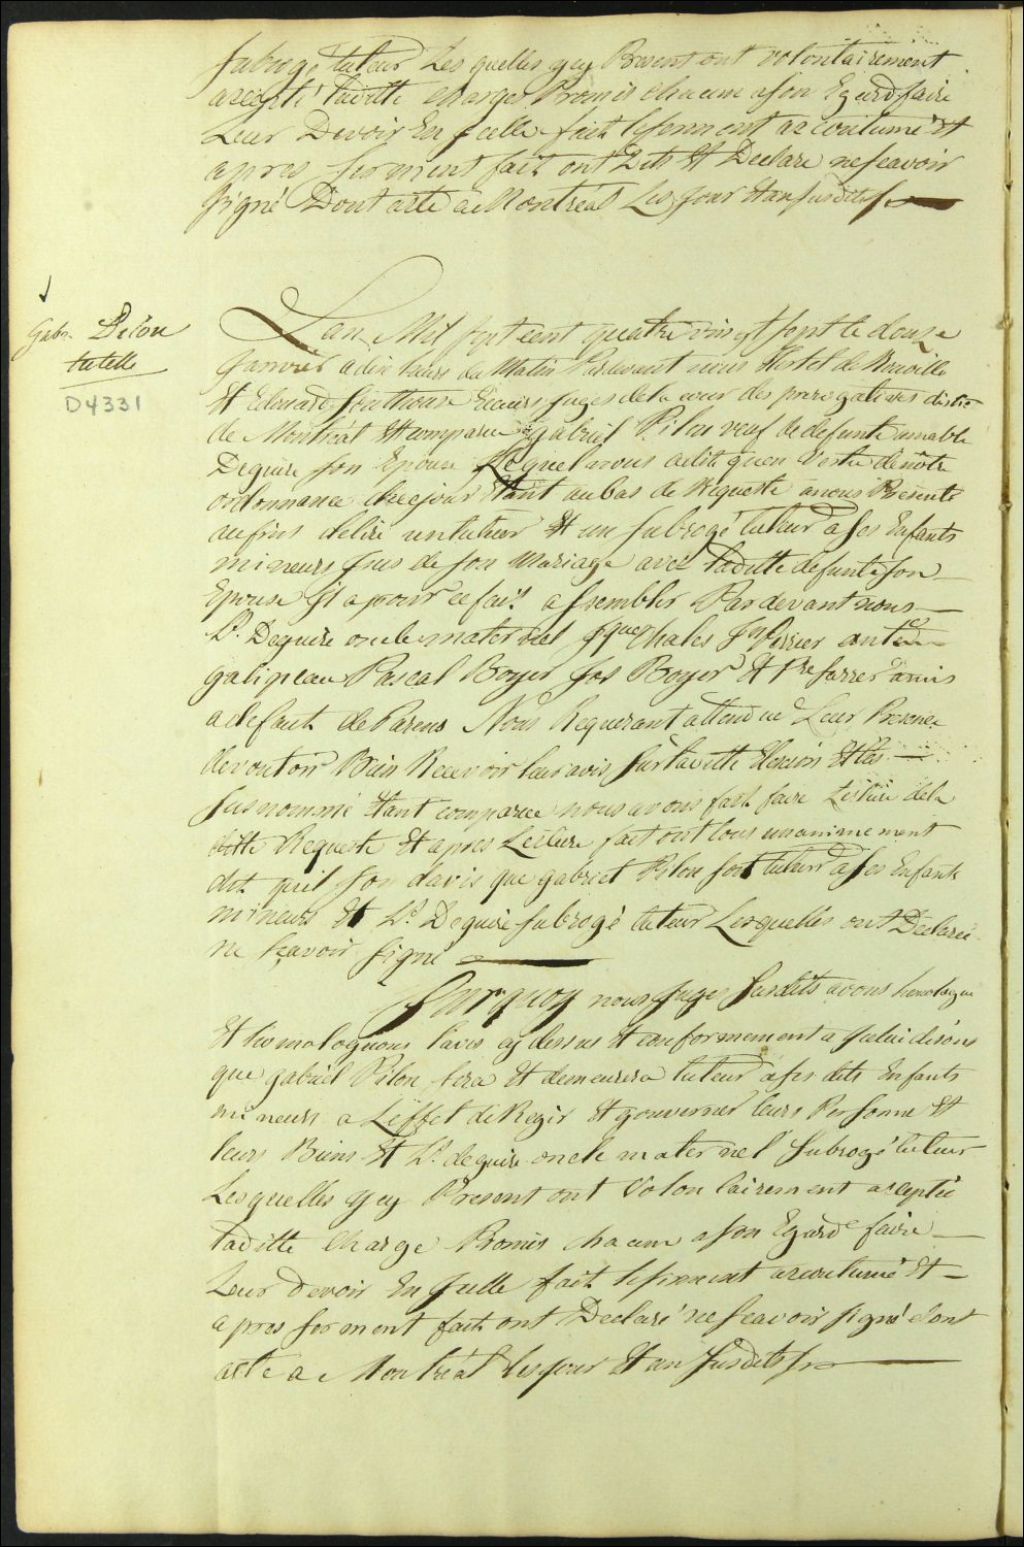 subrogé tuteur Lesquelles y cy Present ont volontairement
accepté laditte charge Promis chacune a son Egard faire
Leur Devoir En Jcelle fait le serment accoutumé Et
apres serment fait ont Dits Et Declare ne scavoir
signé Dont acte a Montréal Les Jour Et an susdits
Gabr. Pilon
tutelle
D4331
Lan Mil sept cent quatre vingt sept le douze
Janvier a dix heure du Matin Pardevant nous Hertel de Rouville
Et Edouard Southouse Ecuiers Juges de la cour des prerogatives district
de Montréal Et comparu gabriel Pilon veuf de defunte amable
Deguire son Epouse Lequel nous a dit quen Vertu de nôtre
ordonnance de cejour Etant au bas de Requeste a nous Presenté
au fins delire un tuteur Et un subrogé tuteur a ses Enfants
mineurs Jsus de son Mariage avec laditte defunte son
Epouse Jl a pour ce fait assembler Pardevant nous
Ls. Deguire oncle maternel Jques hales Jph Perrier ante
galipeau Pascal Boyer Jos Boyer Et Pre farrer amis
a defaut de Parens Nous Requerant attendue Leur Presence
de vouloir Bien Recevoir leur avis sur laditte Election Et les
susnommé Etant comparue nous avons fait faire Lecture dela
ditte Requeste Et apres Lecture fait ont tous unanimement
dit quil son davis que gabriel Pilon soit tuteur a ses Enfants
mineurs Et Ls. Deguire subrogé tuteur Lesquelles ont Declaré
ne sçavoir signé
Surquoy nous Juges susdits avons homologue
Et homologuons lavis cy dessus Et conformement a Jcelui disons
que gabriel Pilon sera Et demeurera tuteur a ses dits Enfants
mineurs a Leffet de Regir Et gouverner leurs Personne Et
leurs Biens Et Ls. deguire oncle maternel Subrogé tuteur
Lesquelles y cy Present ont Volontairement acceptée
laditte Charge Promis chacune a son Egard faire
Leur Devoir En Jcelle fait le serment accoutumé Et
apres serment fait ont Declaré ne scavoir signé dont
acte a Montréal les jour Et an susdits